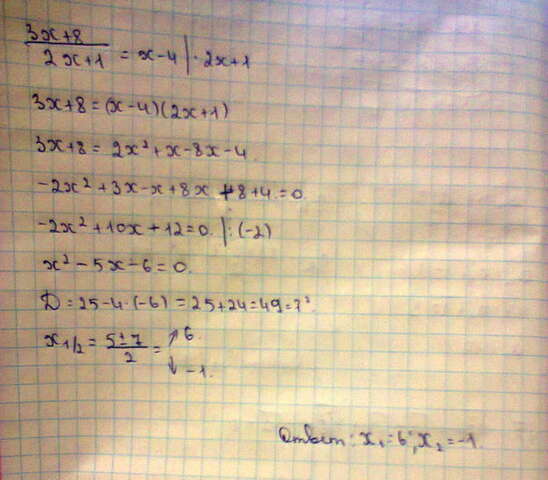 (3x+8)/(2x+1) = x-4 | · 2x+1
3x+8 = (x-4)(2x+1)
3x+8 = 2x²+x-8x-4
-2x²+3x-x+8x+8+4=0.
-2x²+10x+12=0. |:(-2)
x²-5x-6=0.
D=25-4·(-6)=25+24=49=7²
x₁/₂ = (5±7)/2 = ↗ 6. ↓ -1.
Ответ: x₁=6; x₂=-1.